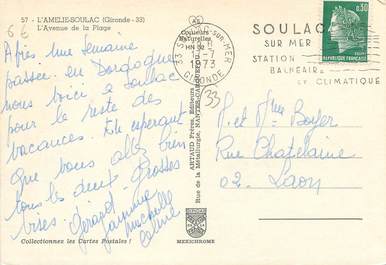 57 - L'AMELIE-SOULAC (Gironde - 33)
L'Avenue de la Plage
6 €
Couleurs
Naturelles
MN 32
Après une Semaine
passée en Dordogne
nous voici à Soulac
pour le reste des
vacances. En espérant
que vous allez bien
tous les deux Grosses
bises. Gérard
Jeannine
Céline
Collectionnez les Cartes Postales !
ARTAUD Frères, Editeurs
Rue de la Métallurgie, NANTES-CARQUEFOU
MEXICHROME
33 SOULAC-SUR-MER
1973
GIRONDE
33
SOULAC
SUR MER
STATION
BALNEAIRE
ET CLIMATIQUE
0,30
REPUBLIQUE FRANÇAISE
M. et Mme Boyer
Rue Chatelaine
02. Laon